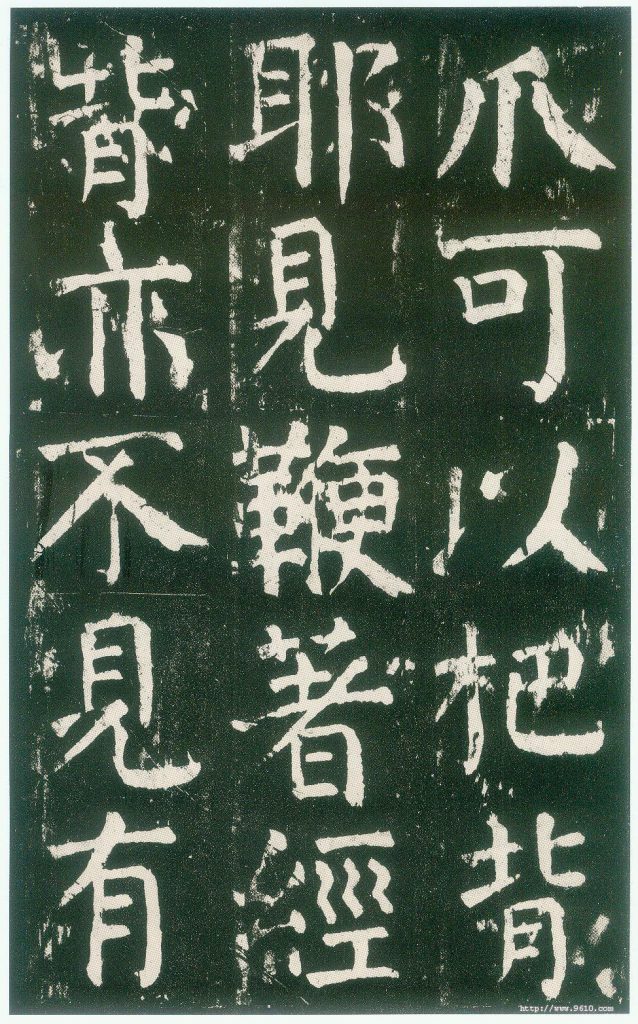 爪可以把背
耶見鞭著經
背亦不見有
http://www.9610.com